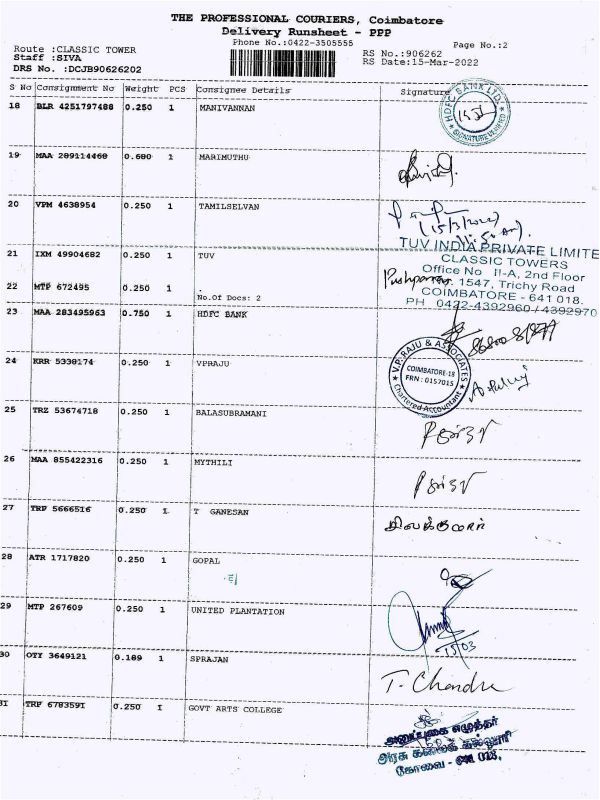 THE PROFESSIONAL COURIERS, Coimbatore
Delivery Runsheet - PPP
Phone No.:0422-3505555
Page No.:2
Route :CLASSIC TOWER
Staff :SIVA
DRS No. :DCJB90626202
RS No.:906262
RS Date:15-Mar-2022
S No Consignment No Weight PCS Consignee Details Signature
18 BLR 4251797488 0.250 1 MANIVANNAN
HDFC BANK LTD.
SIGNATURE LIMITED
19 MAA 289114468 0.680 1 MARIMUTHU
20 VPM 4638954 0.250 1 TAMILSELVAN
(15/3/2022)
21 IXM 49904682 0.250 1 TUV
TUV INDIA PRIVATE LIMITE
CLASSIC TOWERS
Office No II-A, 2nd Floor
1547, Trichy Road
COIMBATORE - 641 018.
PH 0422-4392960 / 4392970
22 MTP 672495 0.250 1
No.Of Docs: 2
23 MAA 283495963 0.750 1 HDFC BANK
24 KRR 5338174 0.250 1 VPRAJU
V.P. RAJU & ASSOCIATES
COIMBATORE-18
FRN : 015701S
Chartered Accountant
25 TRZ 53674718 0.250 1 BALASUBRAMANI
26 MAA 855422316 0.250 1 MYTHILI
27 TRP 5666516 0.250 1 T GANESAN
28 ATR 1717820 0.250 1 GOPAL
29 MTP 267609 0.250 1 UNITED PLANTATION
15/03
30 OTY 3649121 0.189 1 SPRAJAN
T. Chandra
31 TRP 6783591 0.250 1 GOVT ARTS COLLEGE
அனுப்புகை எழுத்தர்
அரசு கலைக் கல்லூரி
கோவை - 641 018.